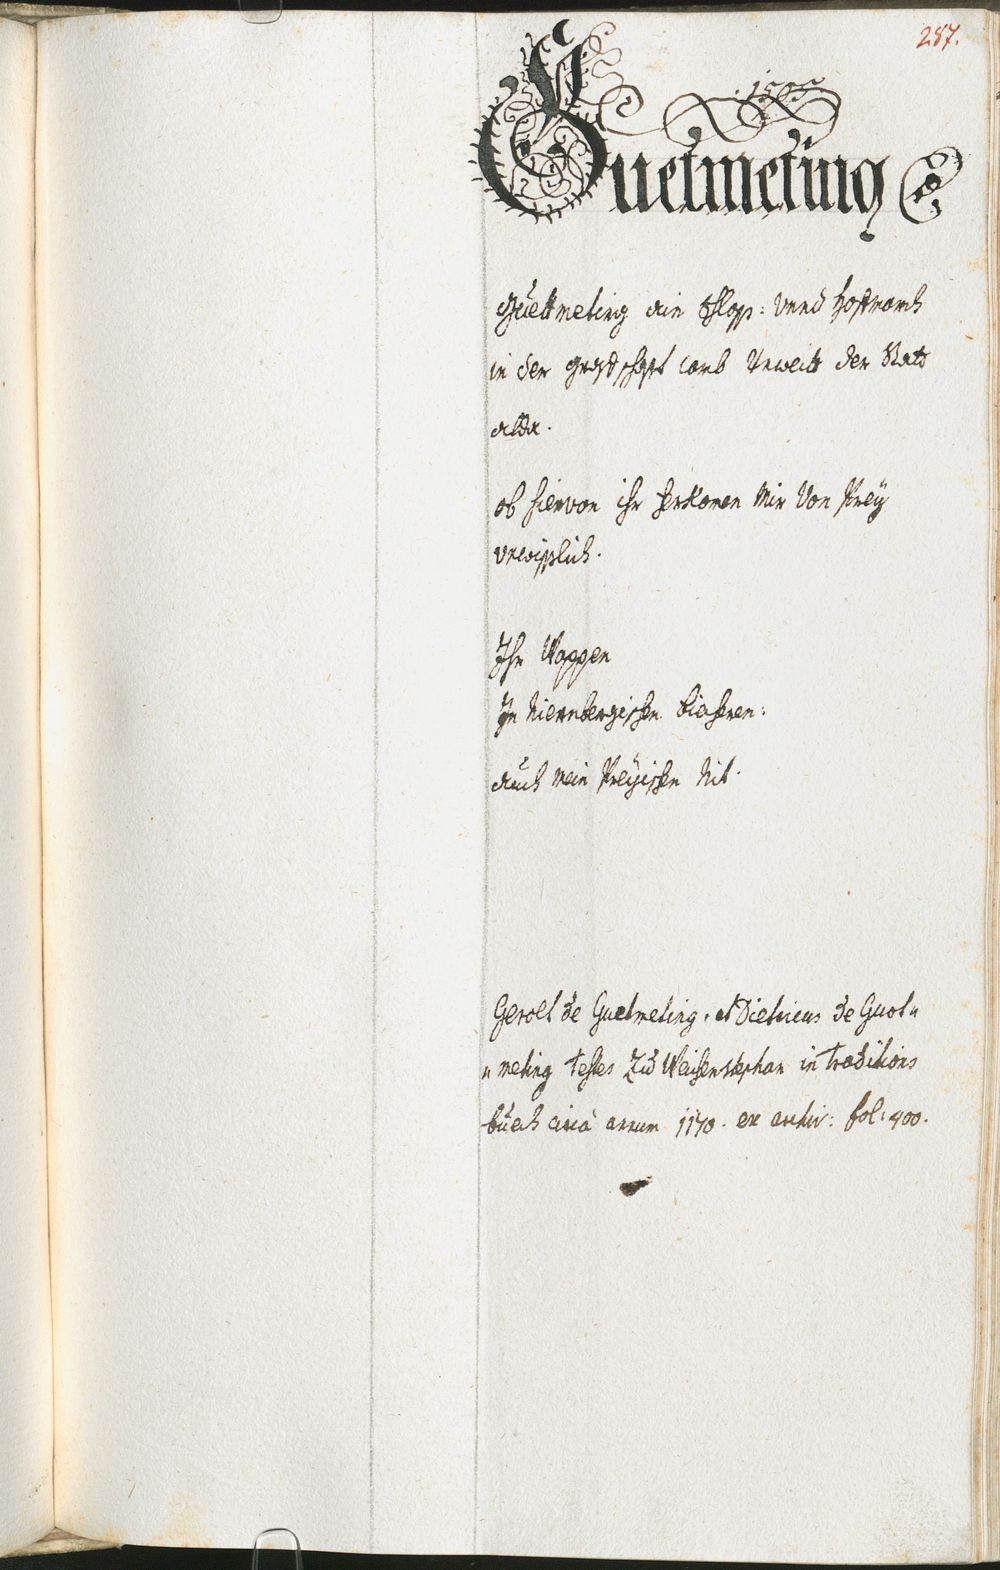 287.
Guetmeting
Guettmeting ain Schloss: vnnd hofmarch
in der graffschafft camb Vnweitt der Statt
alda.
ob hieruon ihr herkomen Mir Von Prey
vnwisslich.
Ihr Wappen
In Niernbergischen biecheren:
auch mein Preyischen Nit.
Gerolt de Guetmeting. et Dietricus de Guot„
„meting testes Zu Weichenstephan in traditions
buech circa annum 1170. ex archiv: fol: 400.